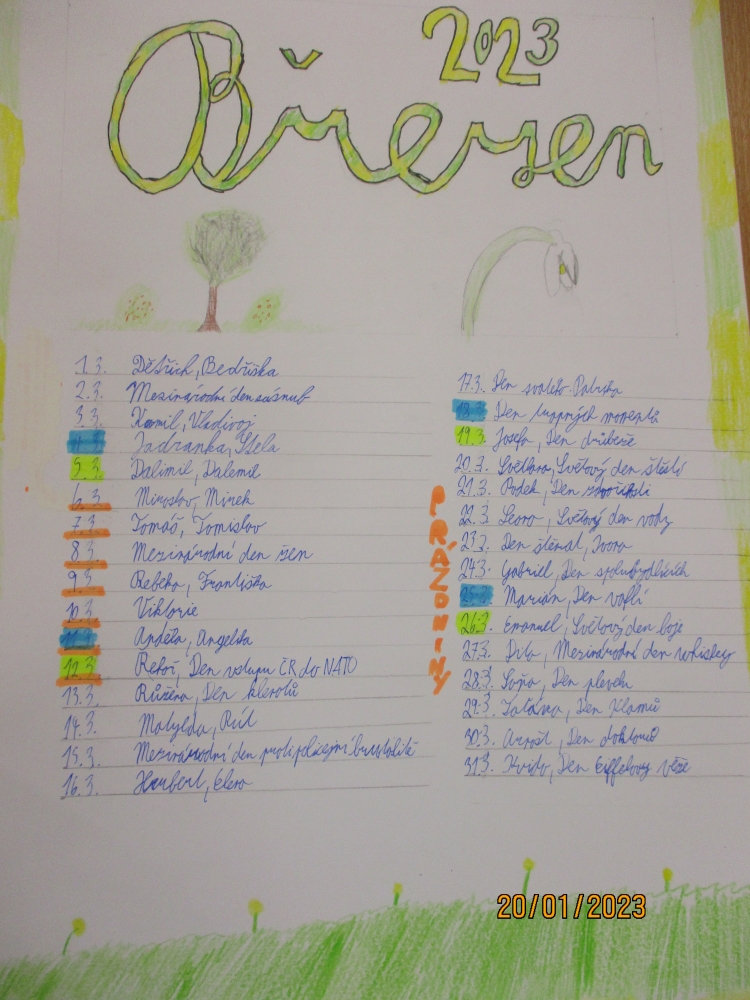 2023
Březen
1.3. Dětřich, Bedřiška
2.3. Mezinárodní den
3.3. Kamil, Vladivoj
4.3. Jadranka, Stela
5.3. Dalimil, Dalemil
6.3. Miroslav, Mirek
7.3. Tomáš, Tomislav
8.3. Mezinárodní den žen
9.3. Rebeka, Františka
10.3. Viktorie
11.3. Anděla, Angelika
12.3. Řehoř, Den vstupu ČR do NATO
13.3. Růžena, Den
14.3. Matylda, Rút
15.3. Mezinárodní den proti policejní brutalitě
16.3. Herbert, Elena
PRÁZDNINY
17.3. Den svatého Patrika
18.3. Den momentů
19.3. Josefa, Den drůbeže
20.3. Světlana, Světový den štěstí
21.3. Radek, Den
22.3. Leona, Světový den vody
23.3. Den štěňat, Ivona
24.3. Gabriel, Den spolubydlících
25.3. Marián, Den vaflí
26.3. Emanuel, Světový den boje
27.3. Dita, Mezinárodní den whiskey
28.3. Soňa, Den plevele
29.3. Taťána, Den klaunů
30.3. Arnošt, Den doktorů
31.3. Kvido, Den Eiffelovy věže
20/01/2023